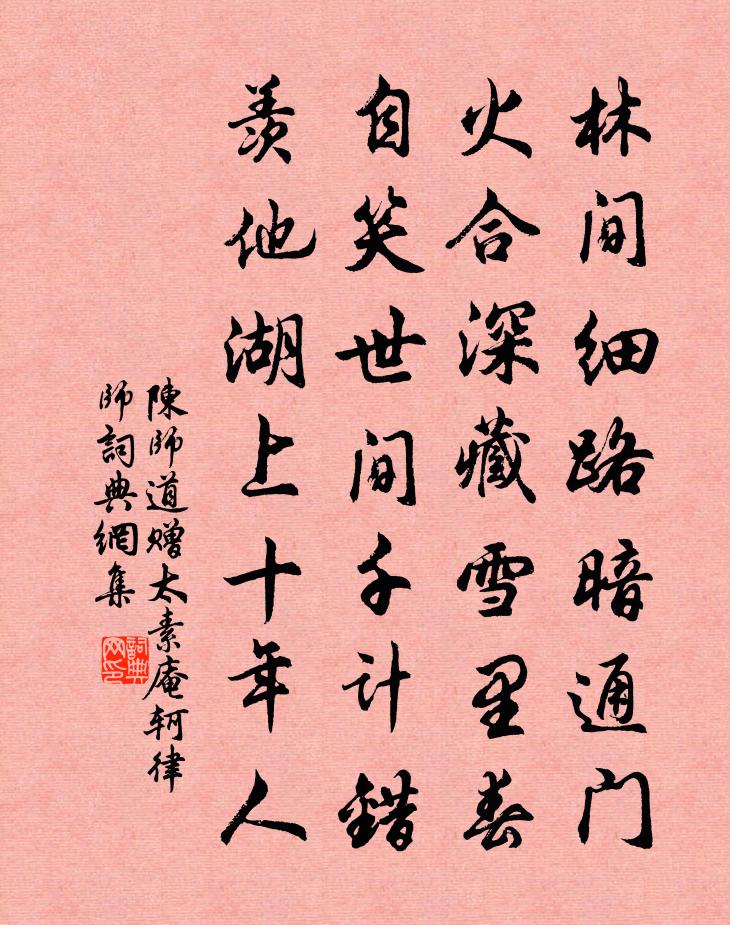 林间细路暗通门
火合深藏雪里春
自笑世间千计错
羨他湖上十年人
陳師道赠太素庵轲律
師詞典網集
詞典网印